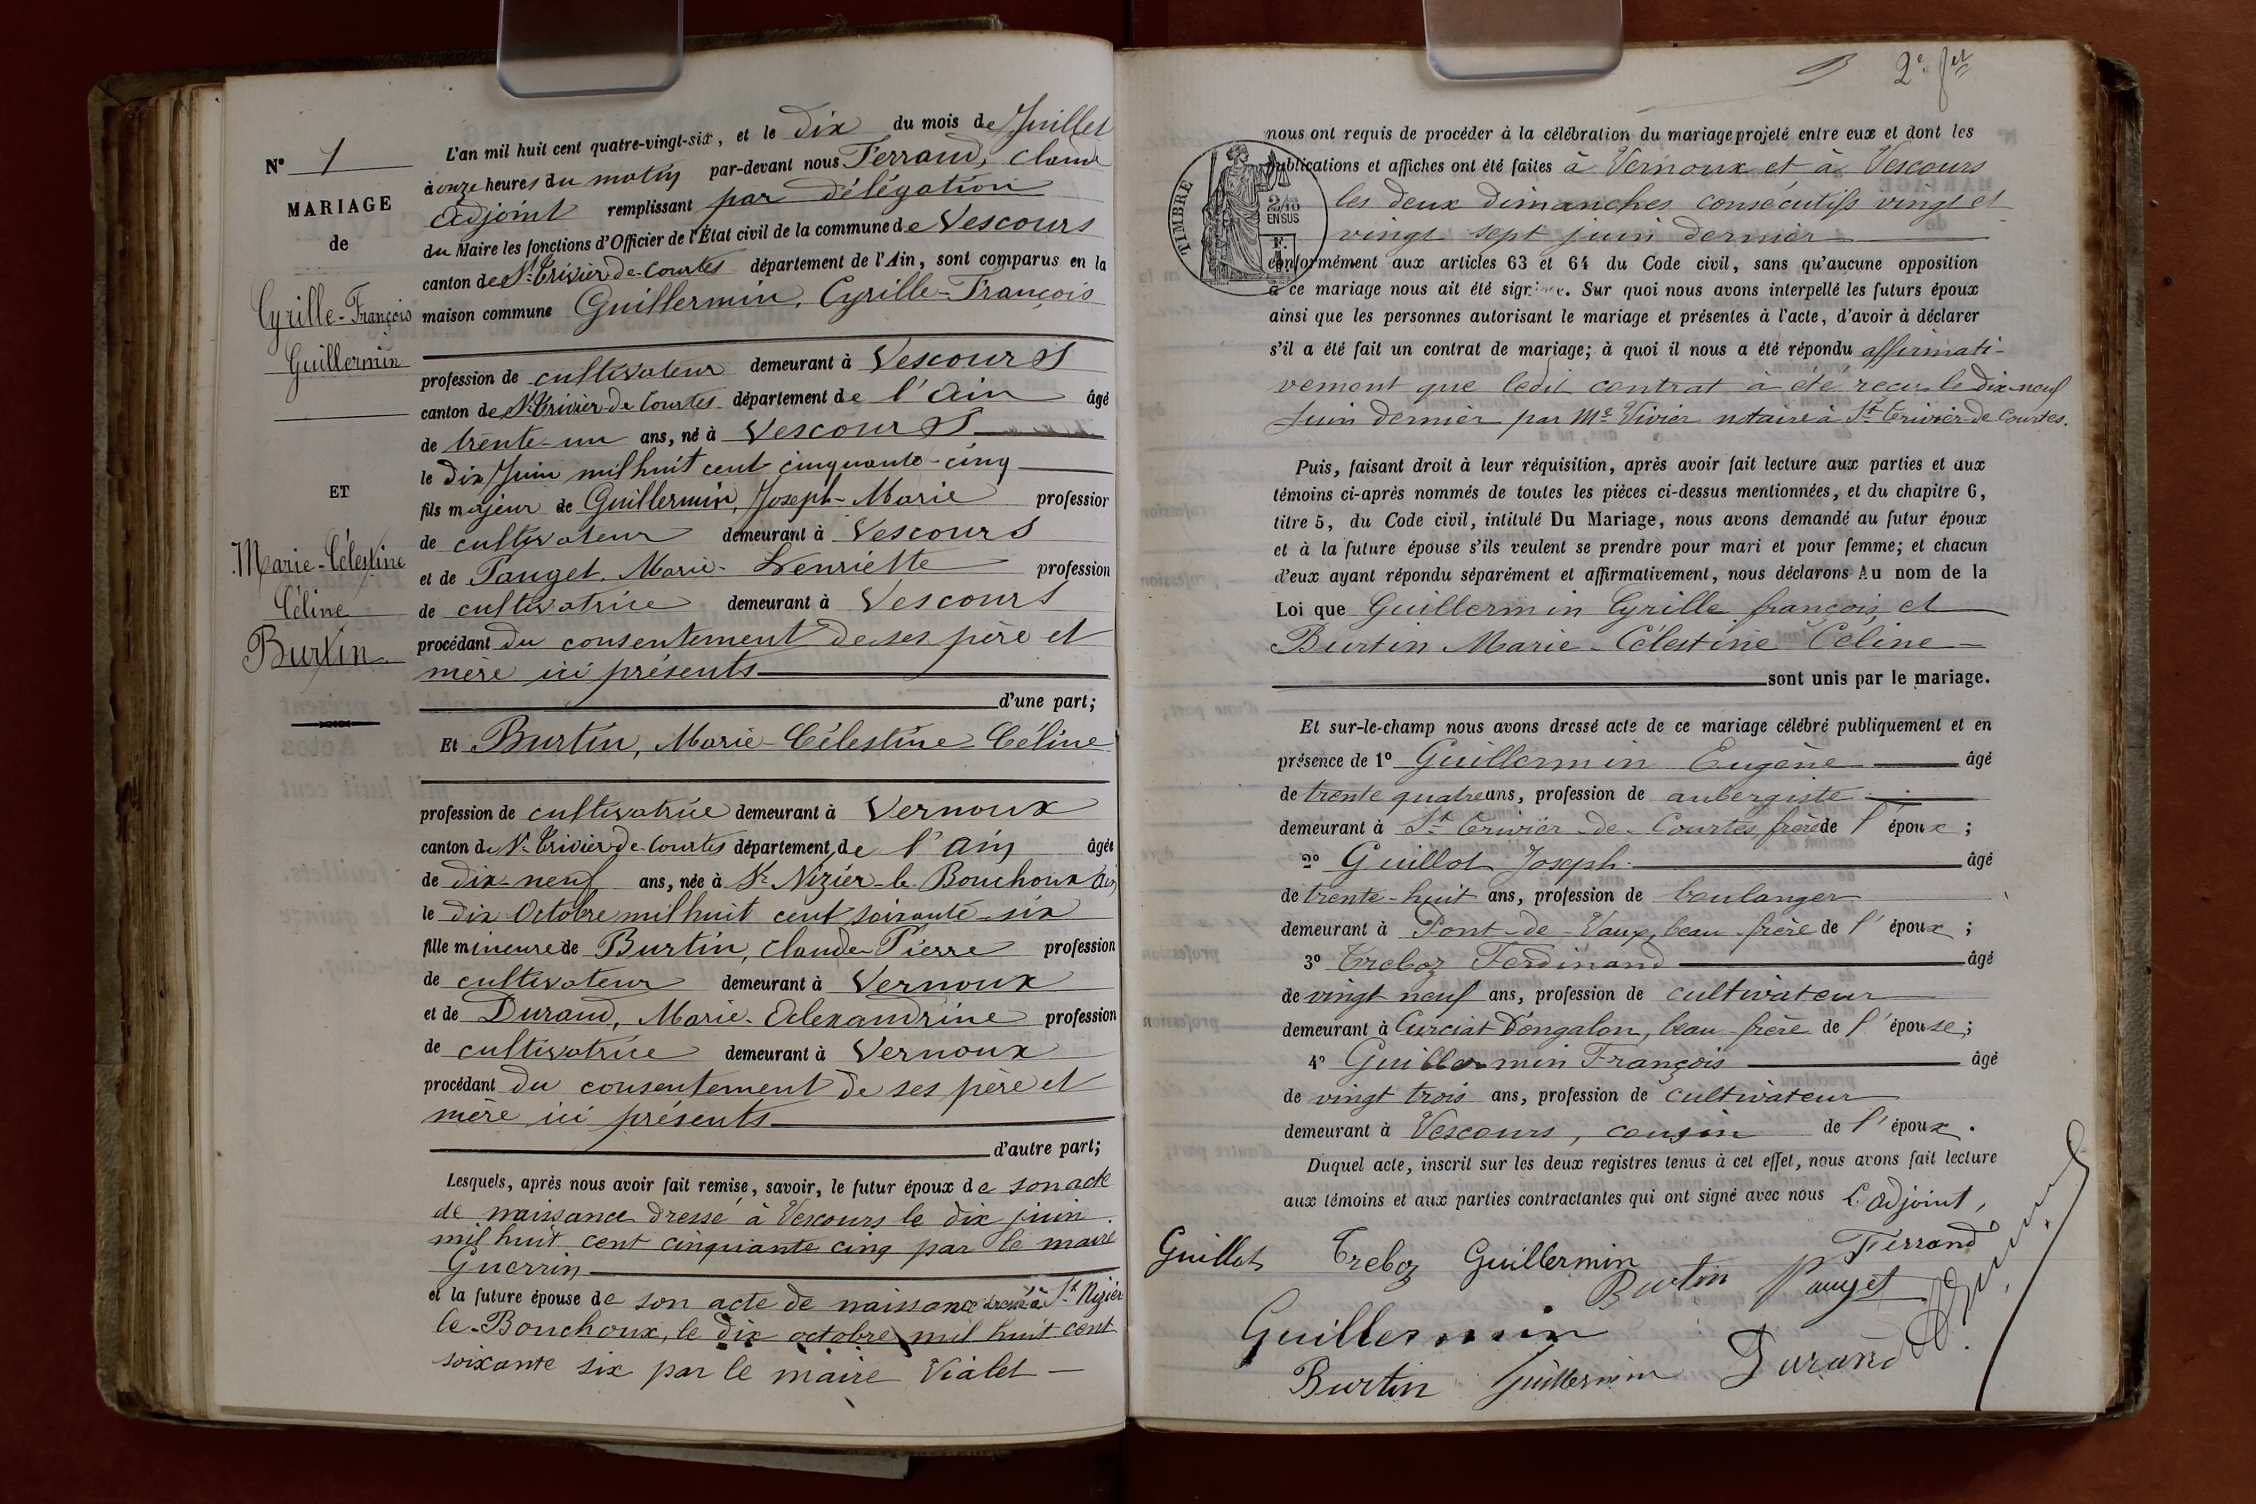 N° 1
MARIAGE
de
Cyrille-François
Guillermin
ET
Marie-Célestine
Céline
Burtin
L'an mil huit cent quatre-vingt-six, et le dix du mois de Juillet
à onze heures du matin par-devant nous Ferrand, Claude
adjoint remplissant par délégation
du Maire les fonctions d'Officier de l'État civil de la commune de Vescours
canton de St Trivier-de-Courtes département de l'Ain, sont comparus en la
maison commune Guillermin, Cyrille-François
profession de cultivateur demeurant à Vescours
canton de St Trivier-de-Courtes département de l'Ain âgé
de trente-un ans, né à Vescours
le dix Juin mil huit cent cinquante-cinq
fils majeur de Guillermin, Joseph-Marie profession
de cultivateur demeurant à Vescours
et de Pauget, Marie-Henriette profession
de cultivatrice demeurant à Vescours
procédant du consentement de ses père et
mère ici présents
d'une part;
Et Burtin, Marie-Célestine Céline
profession de cultivatrice demeurant à Vernoux
canton de St Trivier-de-Courtes département de l'Ain âgée
de dix-neuf ans, née à St Nizier-le-Bouchoux Ain,
le dix Octobre mil huit cent soixante-six
fille mineure de Burtin, Claude-Pierre profession
de cultivateur demeurant à Vernoux
et de Durand, Marie-Alexandrine profession
de cultivatrice demeurant à Vernoux
procédant du consentement de ses père et
mère ici présents
d'autre part;
Lesquels, après nous avoir fait remise, savoir, le futur époux de son acte
de naissance dressé à Vescours le dix juin
mil huit cent cinquante cinq par le maire
Guerrin
et la future épouse de son acte de naissance dressé à St Nizier
le-Bouchoux, le dix octobre mil huit cent
soixante six par le maire Vialet
2e fet
TIMBRE
2/10
EN SUS
nous ont requis de procéder à la célébration du mariage projeté entre eux et dont les
publications et affiches ont été faites à Vernoux et à Vescours
les deux dimanches consécutifs vingt et
vingt sept juin dernier
conformément aux articles 63 et 64 du Code civil, sans qu'aucune opposition
à ce mariage nous ait été signifiée. Sur quoi nous avons interpellé les futurs époux
ainsi que les personnes autorisant le mariage et présentes à l'acte, d'avoir à déclarer
s'il a été fait un contrat de mariage; à quoi il nous a été répondu affirmati-
vement que ledit contrat à été reçu le dix-neuf
Juin dernier par Me Vivier notaire à St Trivier-de Courtes.
Puis, faisant droit à leur réquisition, après avoir fait lecture aux parties et aux
témoins ci-après nommés de toutes les pièces ci-dessus mentionnées, et du chapitre 6,
titre 5, du Code civil, intitulé Du Mariage, nous avons demandé au futur époux
et à la future épouse s'ils veulent se prendre pour mari et pour femme; et chacun
d'eux ayant répondu séparément et affirmativement, nous déclarons Au nom de la
Loi que Guillermin Cyrille françois et
Burtin Marie-Célestine Céline
sont unis par le mariage.
Et sur-le-champ nous avons dressé acte de ce mariage célébré publiquement et en
présence de 1° Guillermin Eugène âgé
de trente quatre ans, profession de aubergiste
demeurant à St Trivier-de-Courtes frère de l'époux;
2° Guillot Joseph âgé
de trente-huit ans, profession de boulanger
demeurant à Pont-de-Vaux, beau-frère de l'époux;
3° Treboz Ferdinand âgé
de vingt neuf ans, profession de cultivateur
demeurant à Curciat D'ongalon, beau-frère de l'épouse;
4° Guillermin François âgé
de vingt trois ans, profession de cultivateur
demeurant à Vescours, cousin de l'époux.
Duquel acte, inscrit sur les deux registres tenus à cet effet, nous avons fait lecture
aux témoins et aux parties contractantes qui ont signé avec nous L'adjoint,
Guillot Treboz Guillermin Ferrand
Burtin Pauget
Guillermin
Burtin Guillermin Durand